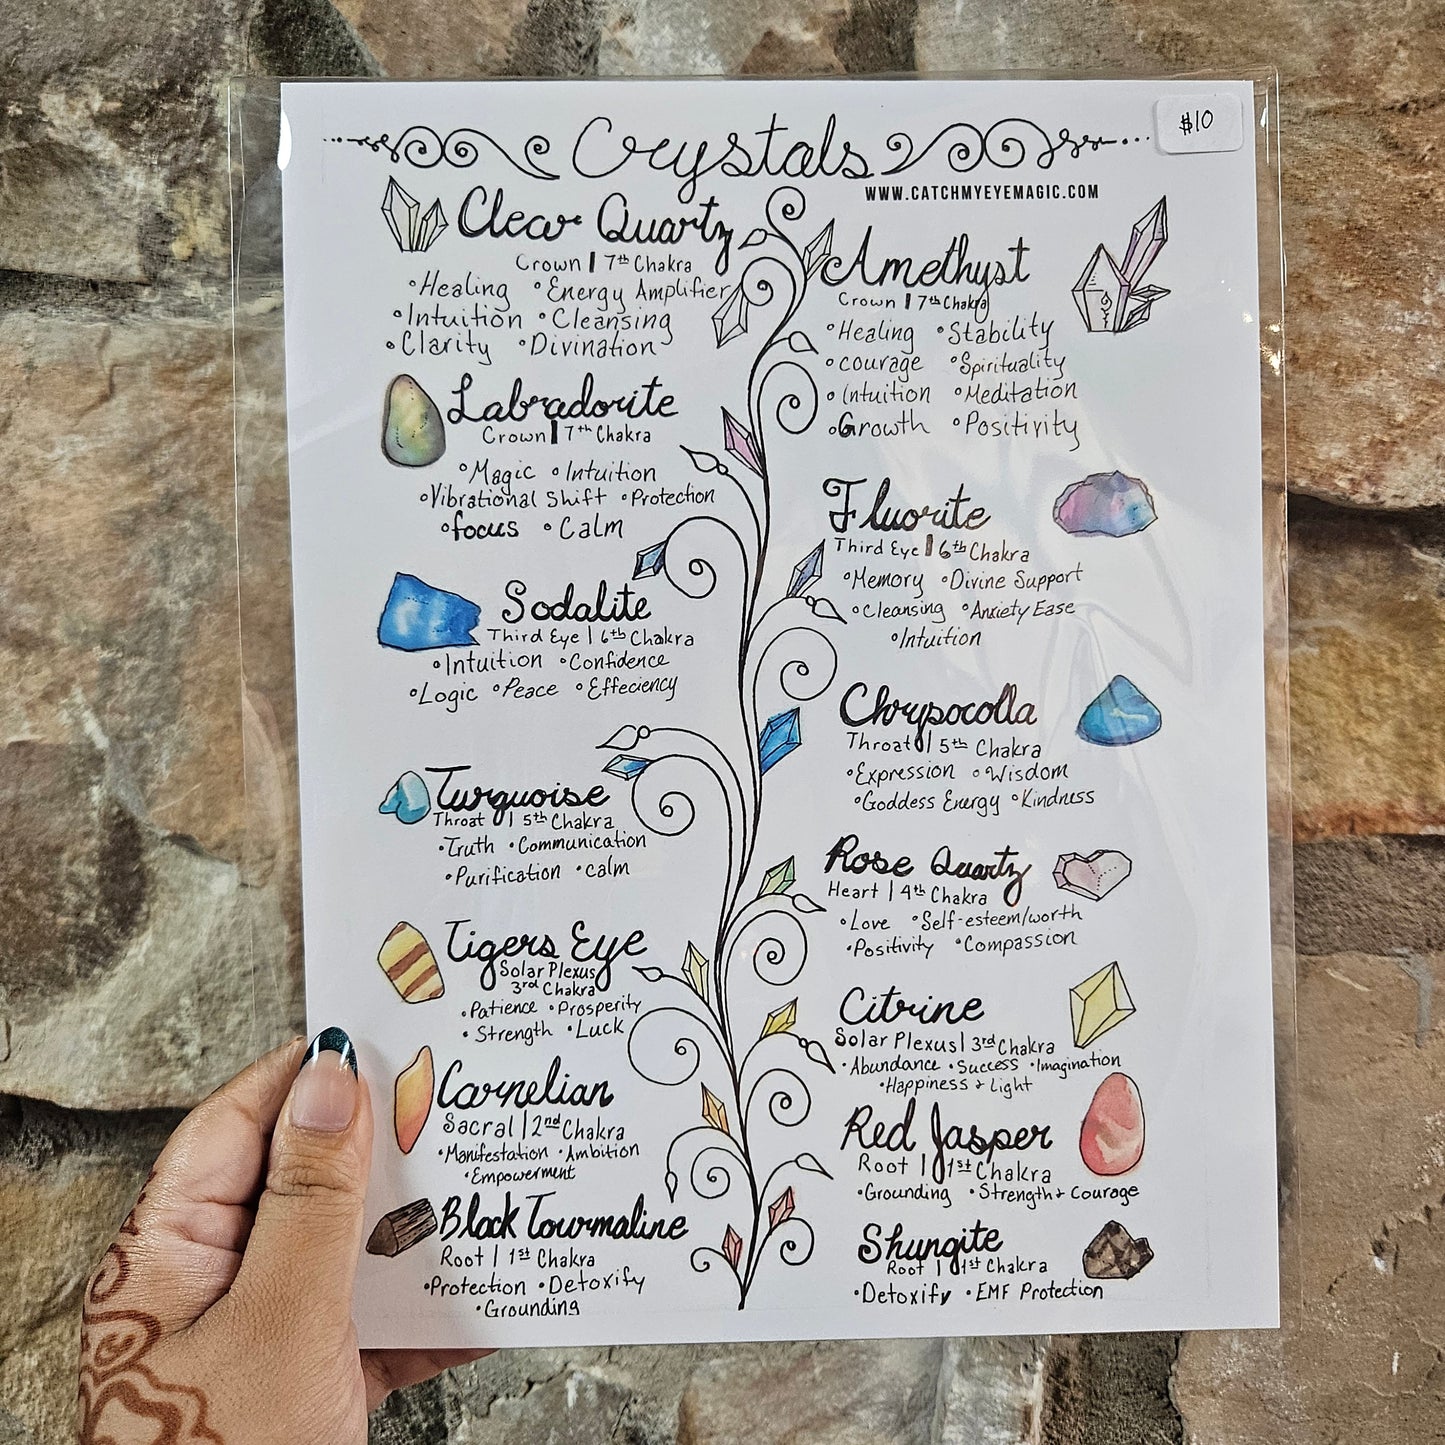 Crystals
$10
WWW.CATCHMYEYEMAGIC.COM
Clear Quartz
Crown | 7th Chakra
•Healing •Energy Amplifier
•Intuition •Cleansing
•Clarity •Divination
Labradorite
Crown | 7th Chakra
•Magic •Intuition
•Vibrational Shift •Protection
•focus •Calm
Sodalite
Third Eye | 6th Chakra
•Intuition •Confidence
•Logic •Peace •Effeciency
Turquoise
Throat | 5th Chakra
•Truth •Communication
•Purification •calm
Tigers Eye
Solar Plexus
3rd Chakra
•Patience •Prosperity
•Strength •Luck
Carnelian
Sacral | 2nd Chakra
•Manifestation •Ambition
•Empowerment
Black Tourmaline
Root | 1st Chakra
•Protection •Detoxify
•Grounding
Amethyst
Crown | 7th Chakra
•Healing •Stability
•courage •Spirituality
•Intuition •Meditation
•Growth •Positivity
Fluorite
Third Eye | 6th Chakra
•Memory •Divine Support
•Cleansing •Anxiety Ease
•Intuition
Chrysocolla
Throat | 5th Chakra
•Expression •Wisdom
•Goddess Energy •Kindness
Rose Quartz
Heart | 4th Chakra
•Love •Self-esteem/worth
•Positivity •Compassion
Citrine
Solar Plexus | 3rd Chakra
•Abundance •Success •Imagination
•Happiness + Light
Red Jasper
Root | 1st Chakra
•Grounding •Strength + Courage
Shungite
Root | 1st Chakra
•Detoxify •EMF Protection